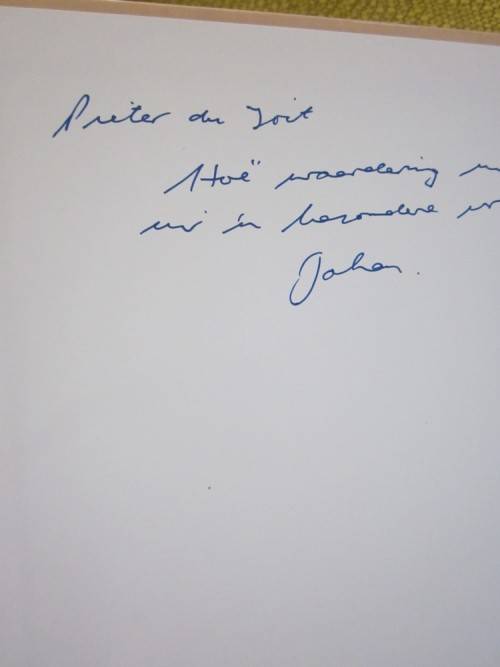 Pieter du Toit
Hoë waardering
vir 'n besondere vr
Johan.